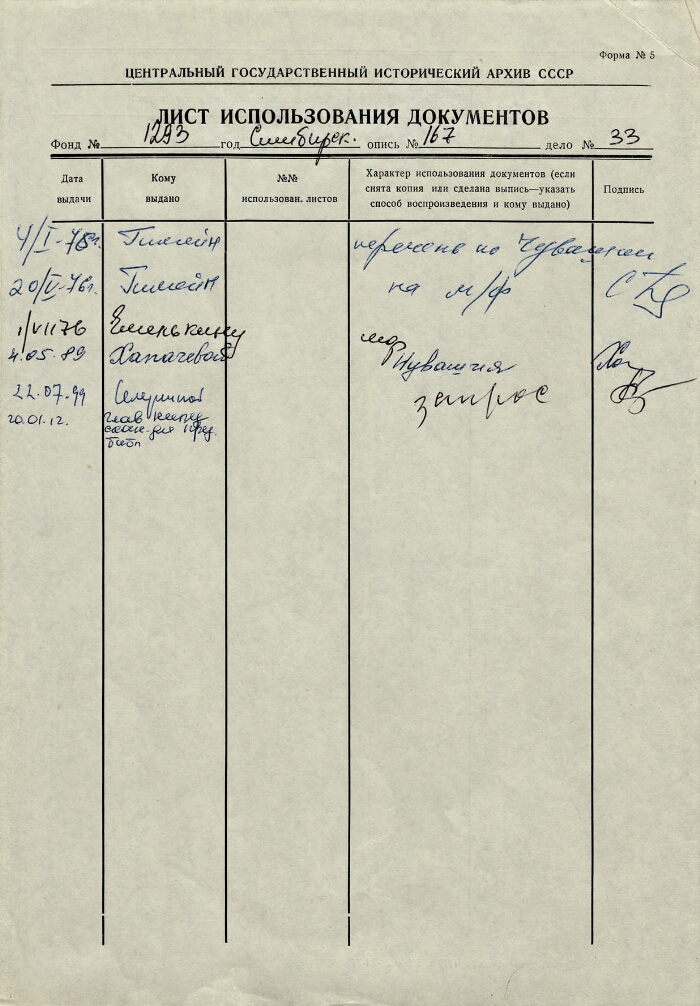 Форма № 5
ЦЕНТРАЛЬНЫЙ ГОСУДАРСТВЕННЫЙ ИСТОРИЧЕСКИЙ АРХИВ СССР
ЛИСТ ИСПОЛЬЗОВАНИЯ ДОКУМЕНТОВ
Фонд № 1293 год Симбирск. опись № 167 дело № 33
Дата выдачи
Кому выдано
№№ использован. листов
Характер использования документов (если снята копия или сделана выпись—указать способ воспроизведения и кому выдано)
Подпись
перечень по Чувашии
20/V-76г. на м/ф
1/VII 76 Емелькину
4.05.89 Хапачевой Чувашия
22.07.99 запрос
20.01.12.